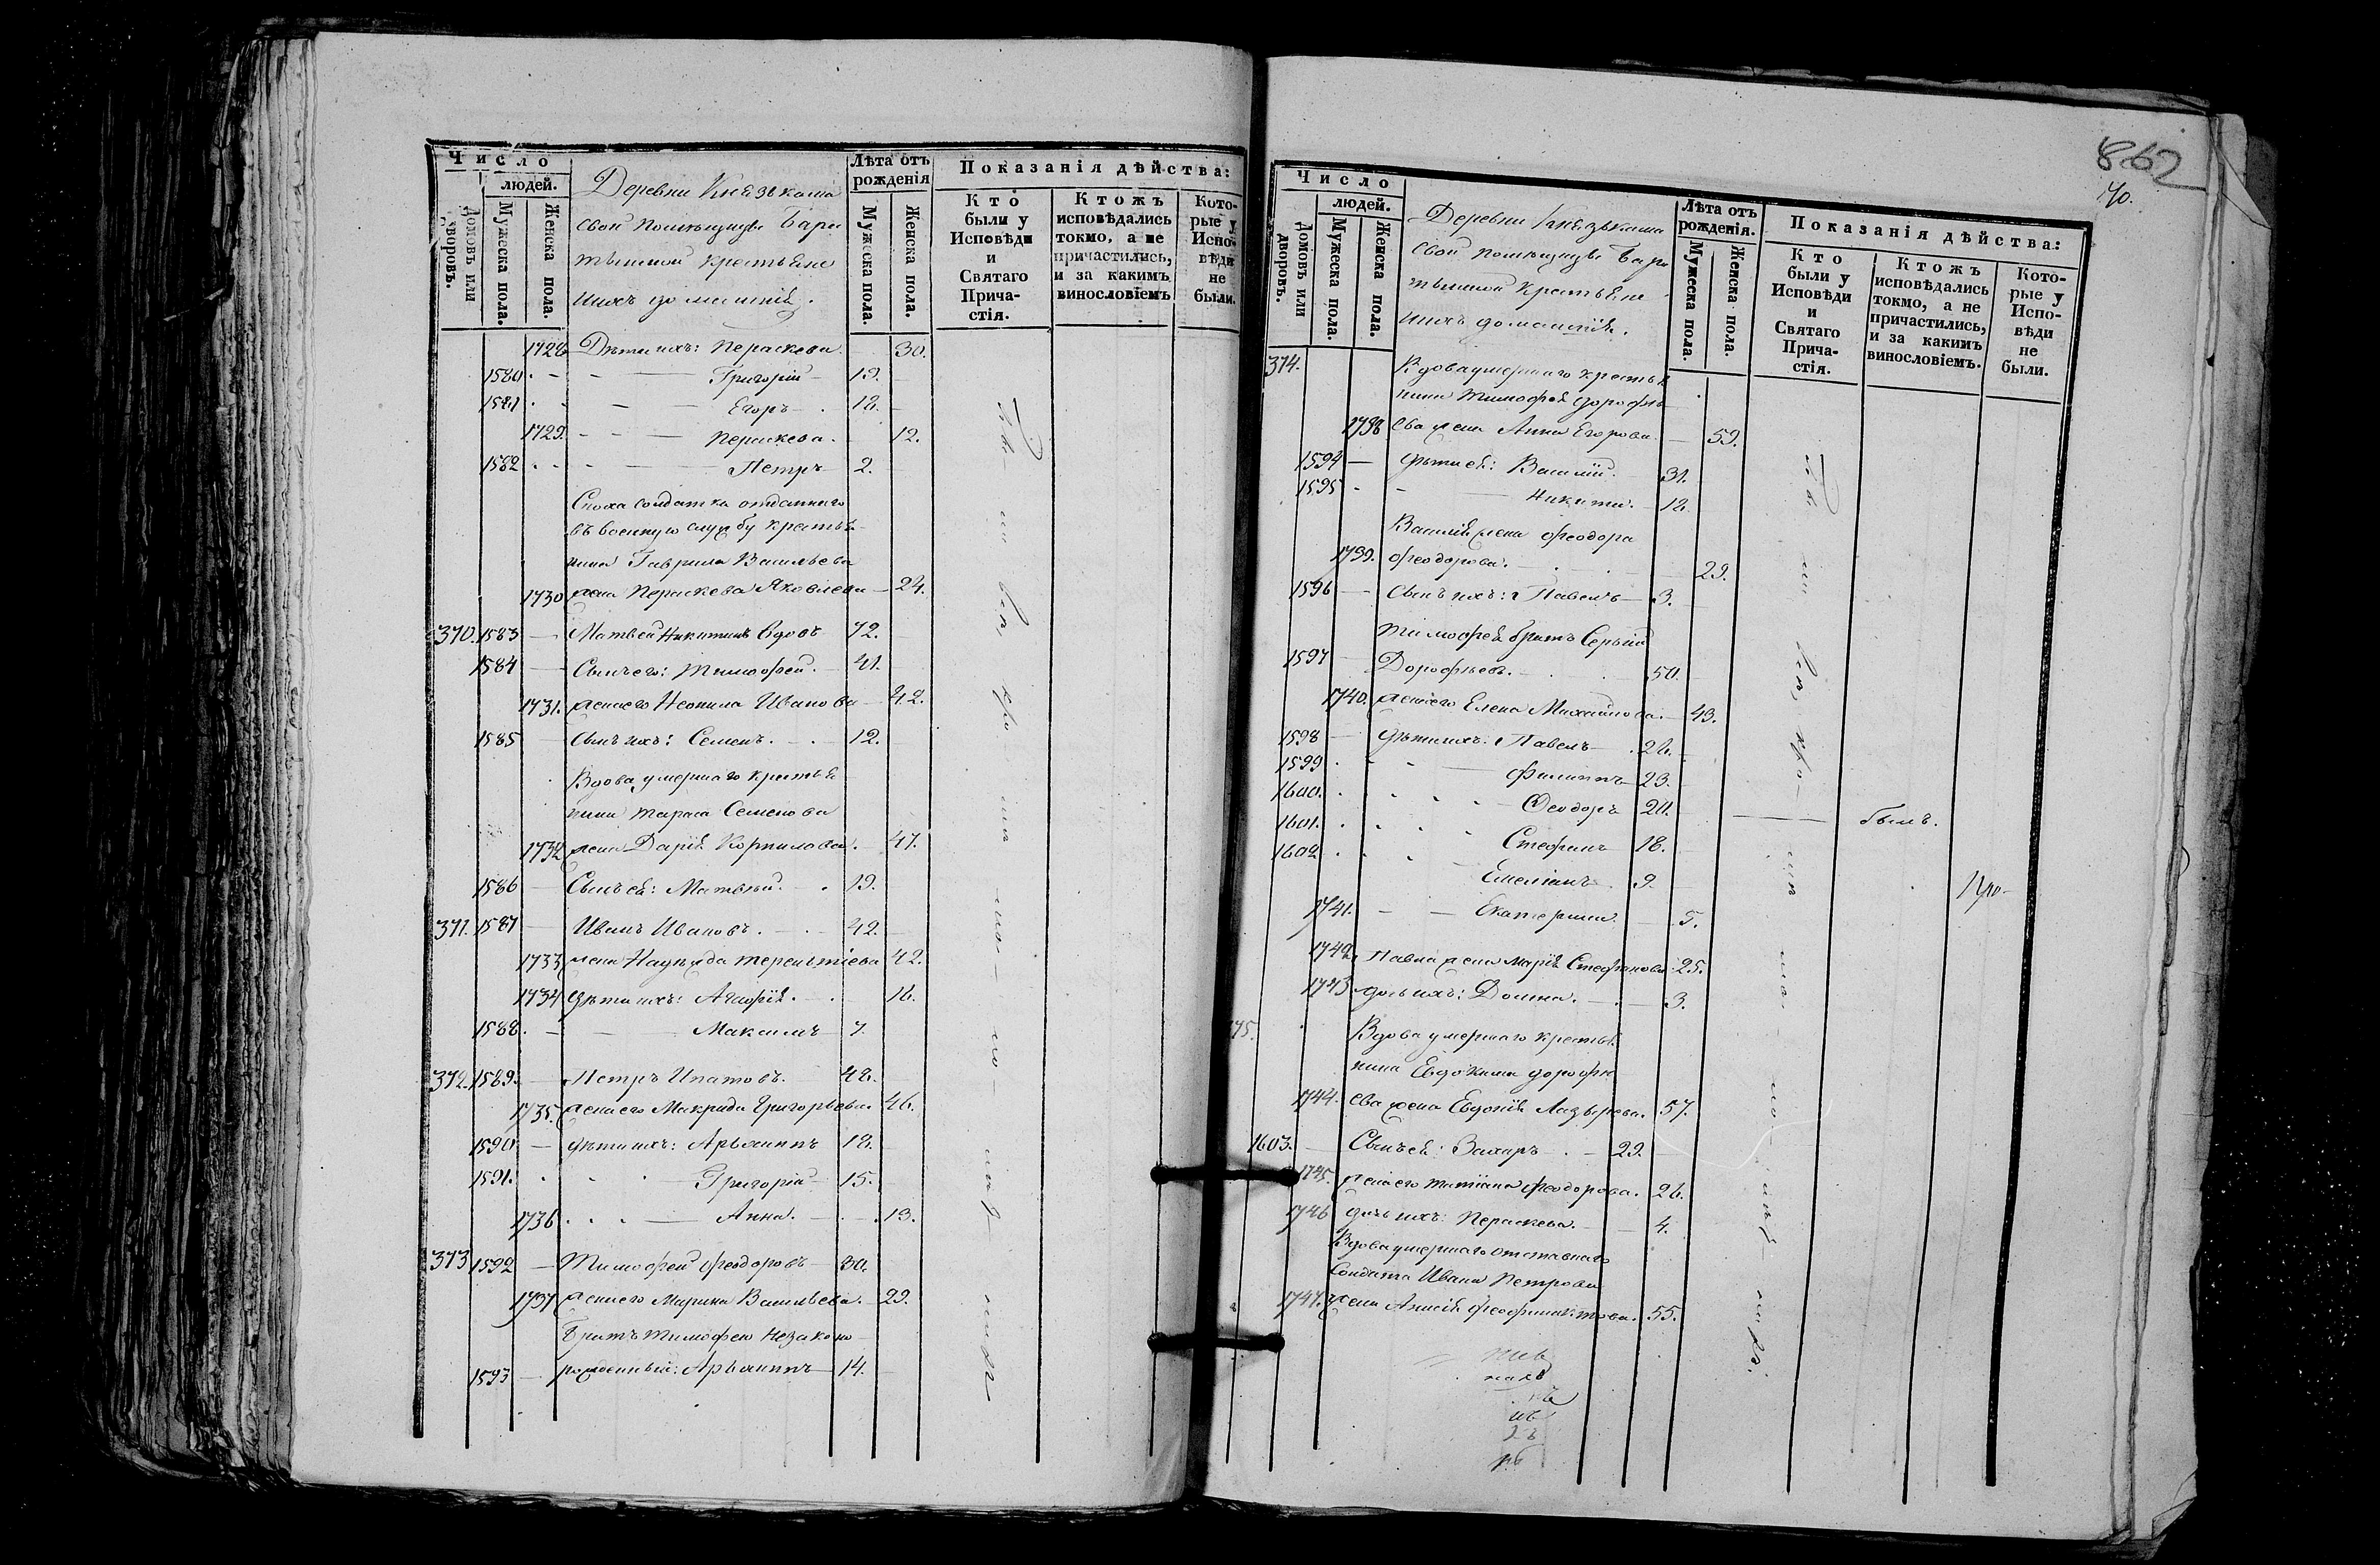 Число
людей.
Домовъ или дворовъ.
Мужеска пола.
Женска пола.
Деревни Князькама
свой помѣщицы Бари
тыншой крестьяне
ихъ домашніе.
Лѣта отъ рожденія
Мужеска пола.
Женска пола.
Показанія дѣйства:
Кто были у Исповѣди и Святаго Причастія.
Ктожъ исповѣдались токмо, а не причастились, и за какимъ винословіемъ
Которые у Исповѣди не были.
1728 Дѣти ихъ: Параскева. 30.
1580. Григорій 19.
1581 Егоръ 18.
1729. Параскева. 12.
1582 Петръ 2.
Сноха солдатка отданнаго
въ военную службу крестья
нина Гаврила Васильева
1730 жена Параскева Яковлева 24.
370. 1583 Матвей Никитинъ вдовъ 72.
1584 Сынъ его: Тимофей. 41.
1731. жена его Неонила Иванова 42.
1585 Сынъ ихъ: Семенъ. 12.
Вдова умершаго крестья
нина Тараса Семенова
1732 жена Дарія Корнилова. 47.
1586 Сынъ ея: Матвѣй. 19.
371. 1587 Иванъ Ивановъ. 42.
1733 жена Надежда Терентіева 42.
1734 Дѣти ихъ: Агафія. 16.
1588. Максимъ 7.
372. 1589. Петръ Ипатовъ. 48.
1735. жена его Макрида Григорьева. 46.
1590 Дѣти ихъ: Архиппъ 18.
1591. Григорій 15.
1736 Анна. 13.
373 1592 Тимофей Феодоровъ 30.
1737 жена его Марина Васильева. 29.
Братъ Тимофея незаконно
1593 рожденный: Архиппъ 14.
862
70.
Число
людей.
Домовъ или дворовъ.
Мужеска пола.
Женска пола.
Деревни Князькама
свой помѣщицы Бари
тыншой крестьяне
ихъ домашніе.
Лѣта отъ рожденія.
Мужеска пола.
Женска пола.
Показанія дѣйства:
Кто были у Исповѣди и Святаго Причастія.
Ктожъ исповѣдались токмо, а не причастились, и за какимъ винословіемъ.
Которые у Исповѣди не были.
374. Вдова умершаго крестья
нина Тимофея Дорофѣ
1738 ева жена Анна Егорова. 59.
1594 Дѣти ея: Василій. 31.
1595 Никита. 18.
Василія жена Феодора
1739. Феодорова. 29.
1596 Сынъ ихъ: Павелъ 3.
Тимофея братъ Сергій
1597 Дорофѣевъ. 50.
1740. жена его Елена Михайлова. 43.
1598 Дѣти ихъ: Павелъ 26.
1599 Филиппъ 23.
1600. Феодоръ 20.
1601. Стефанъ 18. былъ.
1602 Емеліанъ. 9.
1741. Екатерина. 5.
1742. Павла жена Марія Стефанова 25.
1743 дочь ихъ: Домна. 3.
375. Вдова умершаго крестья
нина Евдокима Дорофе
1744. ева жена Евдокія Лазарева. 57.
1603. Сынъ ея: Захаръ 29.
1745. жена его Татіана Феодорова. 26.
1746 дочь ихъ: Параскева. 4.
Вдова умершаго отставнаго
Солдата Ивана Петрова
1747. жена Анисія Феофилактова. 55.